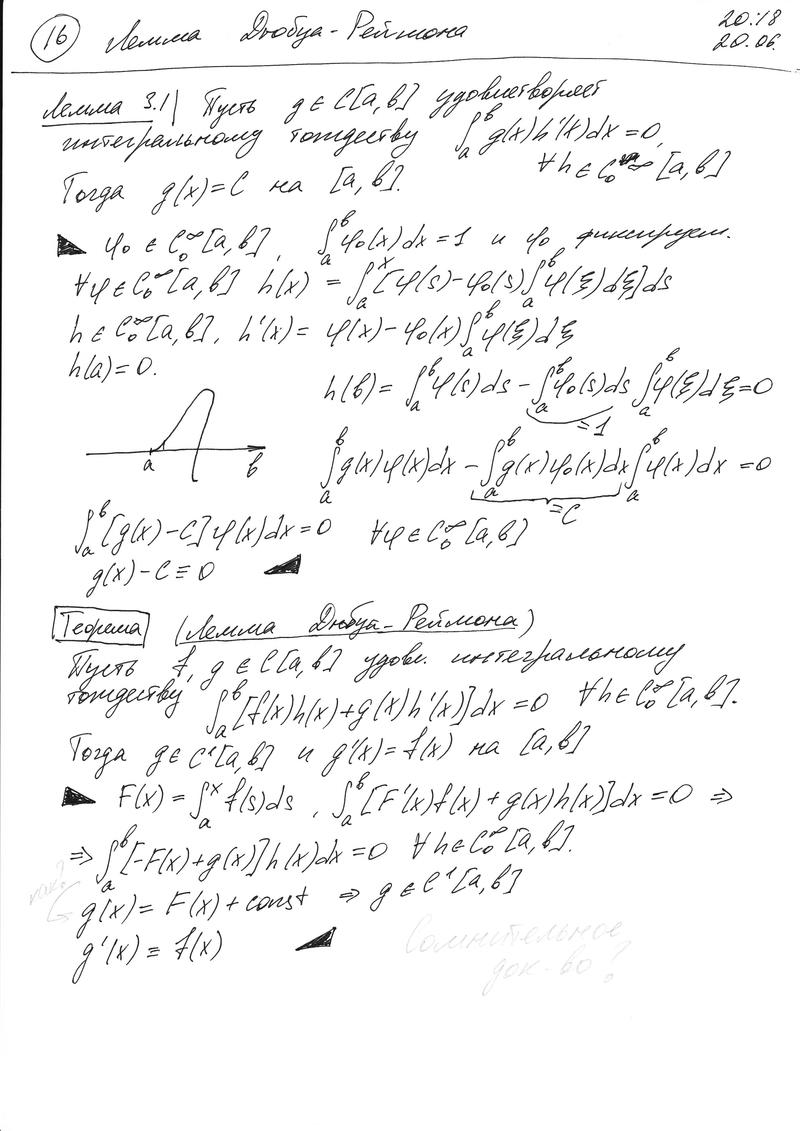 16 Лемма Дюбуа-Реймона 20:18
20.06.
Лемма 3.1 | Пусть g ∈ C[a, b] удовлетворяет
интегральному тождеству ∫ₐᵇ g(x)h'(x)dx = 0,
∀h ∈ C₀^∞ [a, b]
Тогда g(x) = C на [a, b].
φ₀ ∈ C₀^∞[a, b], ∫ₐᵇ φ₀(x)dx = 1 и φ₀ фиксируем.
∀φ ∈ C₀^∞[a, b] h(x) = ∫ₐˣ [φ(s) - φ₀(s)∫ₐᵇ φ(ξ)dξ]ds
h ∈ C₀^∞[a, b], h'(x) = φ(x) - φ₀(x)∫ₐᵇ φ(ξ)dξ
h(a) = 0.
h(b) = ∫ₐᵇ φ(s)ds - ∫ₐᵇ φ₀(s)ds ∫ₐᵇ φ(ξ)dξ = 0
=1
a b
∫ₐᵇ g(x)φ(x)dx - ∫ₐᵇ g(x)φ₀(x)dx ∫ₐᵇ φ(x)dx = 0
=C
∫ₐᵇ [g(x) - C]φ(x)dx = 0 ∀φ ∈ C₀^∞[a, b]
g(x) - C ≡ 0
Теорема (Лемма Дюбуа-Реймона)
Пусть f, g ∈ C[a, b] удовл. интегральному
тождеству ∫ₐᵇ [f(x)h(x) + g(x)h'(x)]dx = 0 ∀h ∈ C₀^∞[a, b].
Тогда g ∈ C¹[a, b] и g'(x) = f(x) на [a, b]
F(x) = ∫ₐˣ f(s)ds, ∫ₐᵇ [F'(x)f(x) + g(x)h(x)]dx = 0 ⇒
⇒ ∫ₐᵇ [-F(x) + g(x)]h(x)dx = 0 ∀h ∈ C₀^∞[a, b].
как?
g(x) = F(x) + const ⇒ g ∈ C¹[a, b]
g'(x) ≡ f(x)
Сомнительное
док-во?